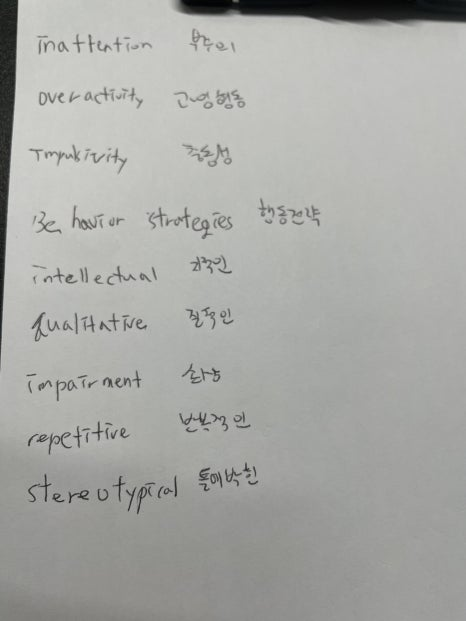 inattention 부주의
overactivity 과잉행동
Impulsivity 충동성
Behavior strategies 행동전략
intellectual 지적인
qualitative 질적인
impairment 손상
repetitive 반복적인
stereotypical 틀에박힌